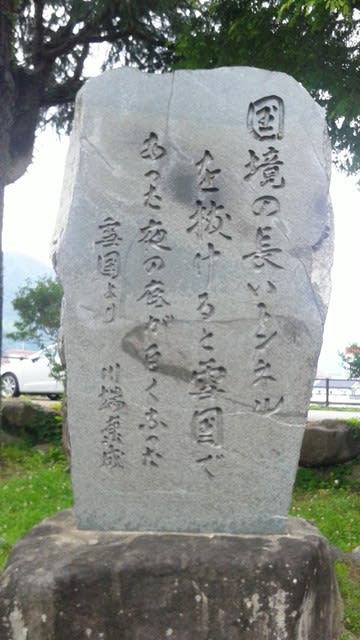 国境の長いトンネル
を抜けると雪国で
あつた夜の底が白くなつた
雪国より
川端康成